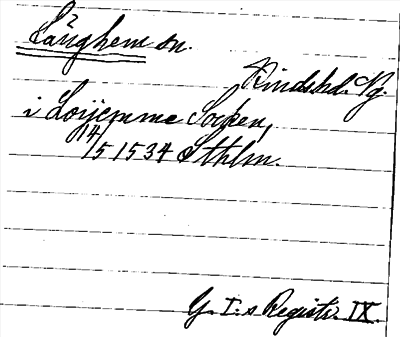 Långhem sn.
Kindshd. Vg
i Loijemme Socken,
14/5 1534 Sthlm.
G. I:s Registr. IX.